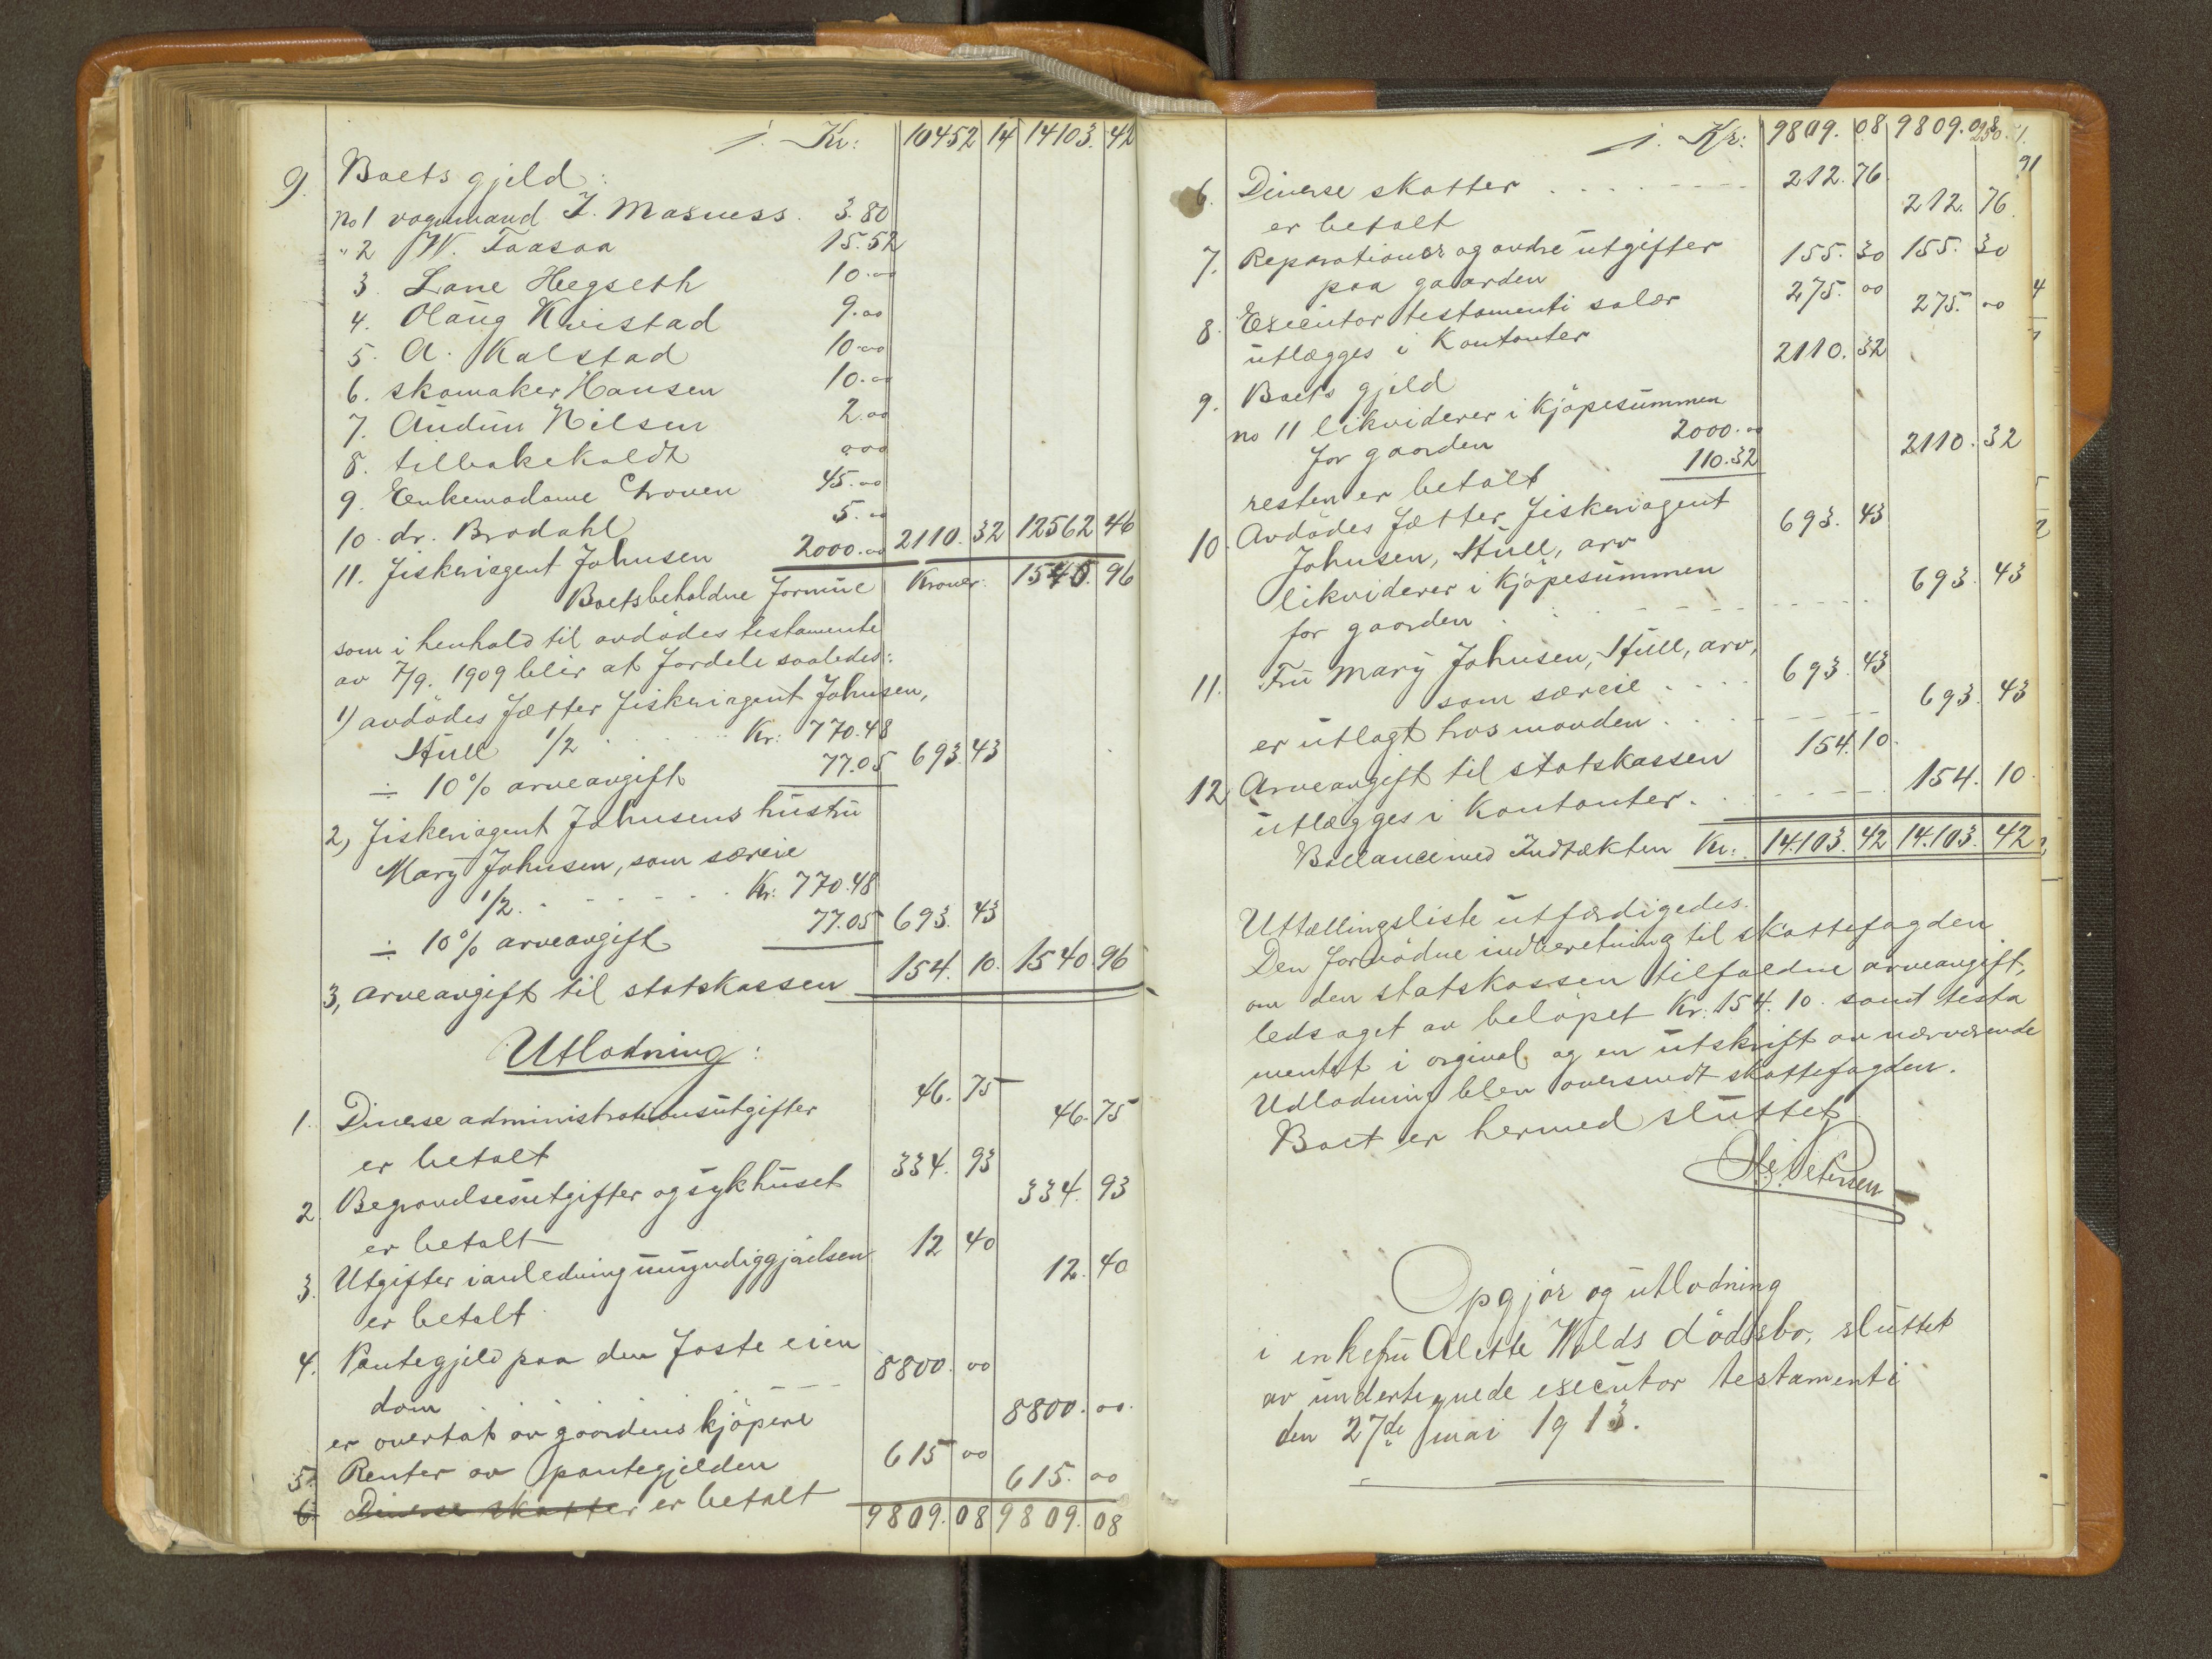 /. Kr: 10452 14 14103. 42
9. Boets gjeld:
No 1 vognmand I. Masness. 3.80
" 2 W. Taasaa 15.52
3 Lane Hegseth 10.00
4. Olaug Kvistad 9.00
5. A. Kalstad 10.00
6. skomaker Hansen 10.00
7. Audun Nilsen 2.00
8. tilbakekaldt 000
9. Enkemadame Groven 45.00
10. dr. Brodahl 5.00
11. fiskeriagent Johnsen 2000.00 2110. 32 12562 46
Boets beholdne formue Kroner. 1540. 96
som i henhold til avdødes testamente
av 7/9. 1909 blir at fordele saaledes:
1) avdødes fætter fiskeriagent Johnsen,
Hull 1/2 Kr: 770.48
÷ 10% arveavgift 77.05 693. 43
2, fiskeriagent Johnsens hustru
Mary Johnsen, som særeie
1/2. Kr: 770.48
÷ 10% arveavgift 77.05 693. 43
3, arveavgift til statskassen 154. 10. 1540. 96
Utlodning:
1. Diverse administrationsutgifter 46. 75
er betalt 46. 75
2. Begravelsesutgifter og sykhuset 334. 93
er betalt 334. 93
3. Utgifter i anledning umyndiggjørelsen 12 40
er betalt 12. 40
4. Pantegjeld paa den faste eien
dom 8800. 00
er overtat av gaardens kjøpere 8800. 00.
5. Renter av pantegjelden 615 00
6. Diverse skatter er betalt 615. 00
9809. 08 9809. 08
/. Kr: 9809. 08 9809. 08
6. Diverse skatter 212. 76
er betalt 212. 76
7. Reparationer og andre utgifter
paa gaarden 155. 30 155. 30
8. Executor testamenti salær 275. 00
utlægges i Kontanter 275. 00
9. Boets gjeld 2110. 32
no 11 likviderer i kjøpesummen
for gaarden 2000.00
resten er betalt 110.32 2110. 32
10. Avdødes fætter fiskeriagent
Johnsen, Hull, arv 693. 43
likviderer i kjøpesummen
for gaarden 693. 43
11. Fru Mary Johnsen, Hull, arv,
som særeie 693. 43
er utlagt hos manden 693. 43
12. Arveavgift til statskassen 154. 10.
utlægges i kontanter. 154. 10.
Ballance med Indtækten Kr: 14.103. 42 14.103. 42
Uttællingsliste utfærdigedes.
Den fornødne indberetning til skattefogden
om den statskassen tilfaldne arveavgift,
ledsaget av beløpet Kr. 154. 10. samt testa
mentet i orginal og en utskrift av nærværende
Udlodning blev oversendt skattefogden.
Boet er hermed sluttet.
Petersen
Opgjør og utlodning
i enkefru Alette Wolds dødsbo, sluttet
av undertegnede executor testamenti
den 27de mai 1913.